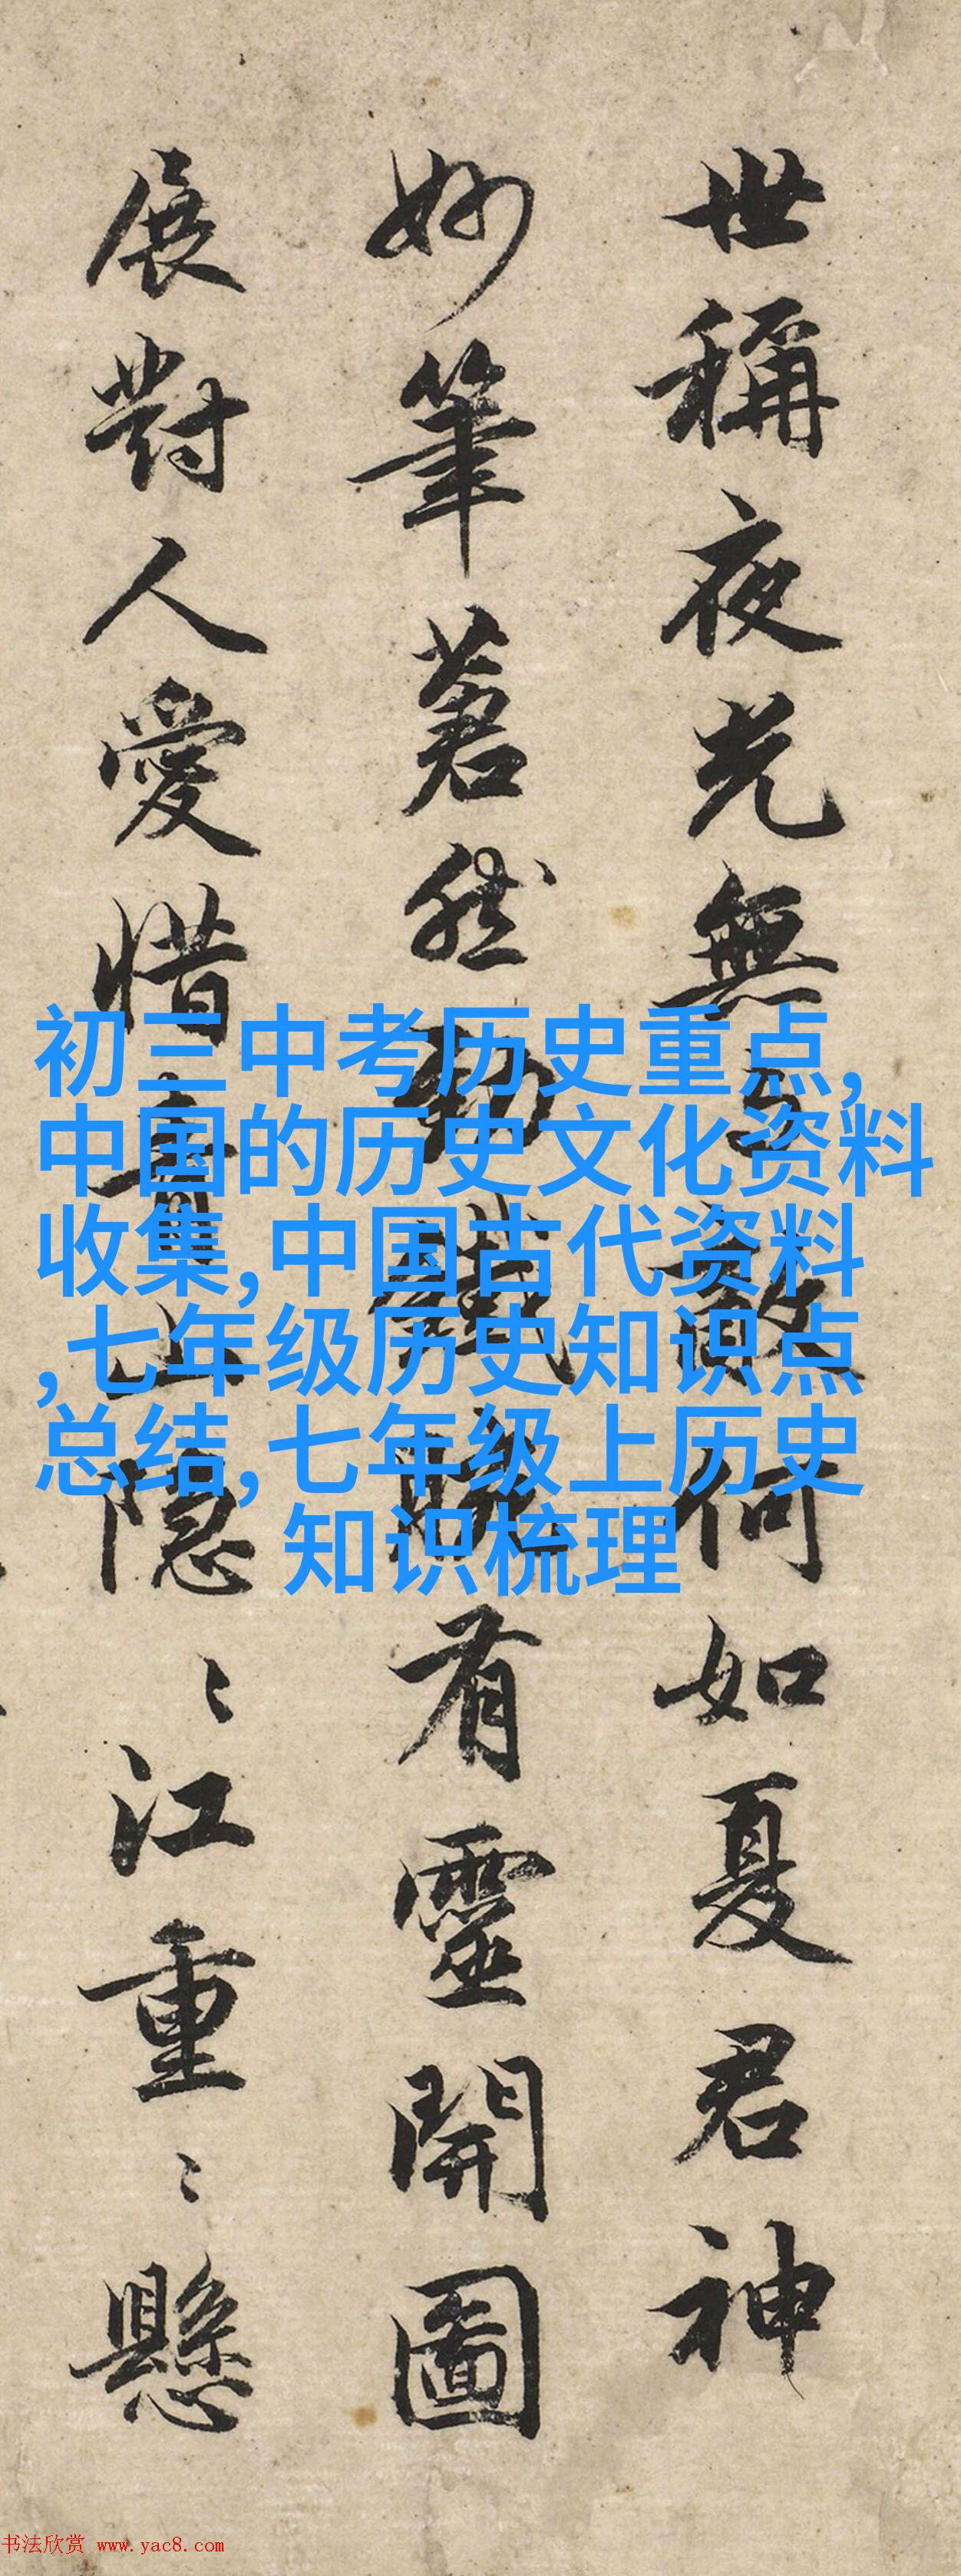 世稱夜光無敵何如夏君神
妙筆然勁鐵有靈開圖
展對人愛惜青山隱〻江重〻懸
初三中考历史重点,
中国的历史文化资料
收集,中国古代资料
,七年级历史知识点
总结,七年级上历史
知识梳理
书法欣赏 www.yac8.com